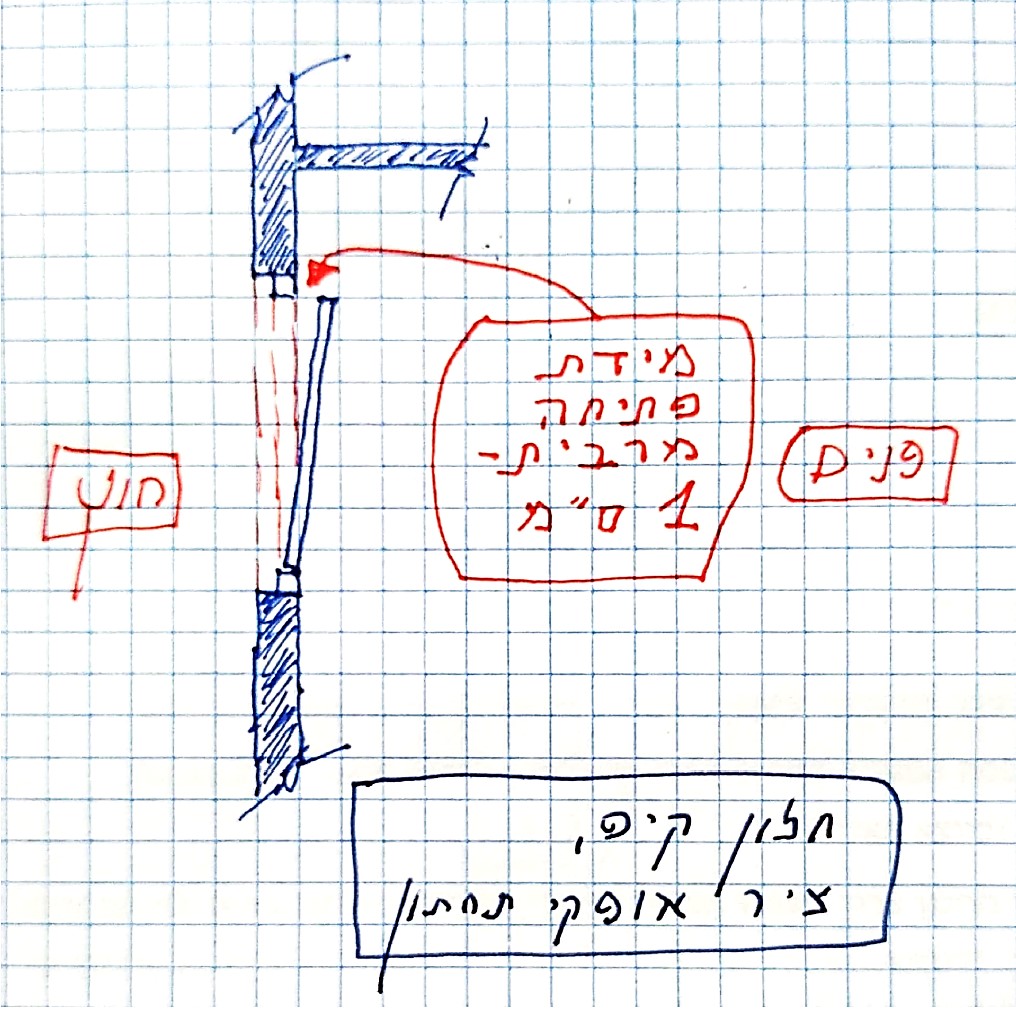 מידת
פתיחה
מרבית-
1 ס"מ
פנים
חוץ
חלון קיפ,
ציר אופקי תחתון